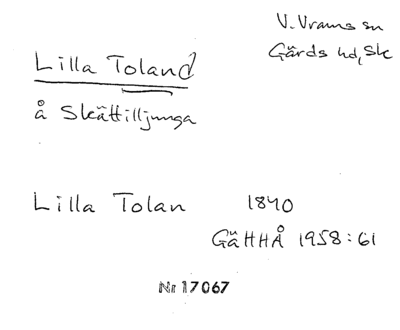 V. Vrams sn
Gärds hd, Sk
Lilla Toland?
å Skättilljunga
Lilla Tolan 1840
GäHHÅ 1958:61
Nr 17067